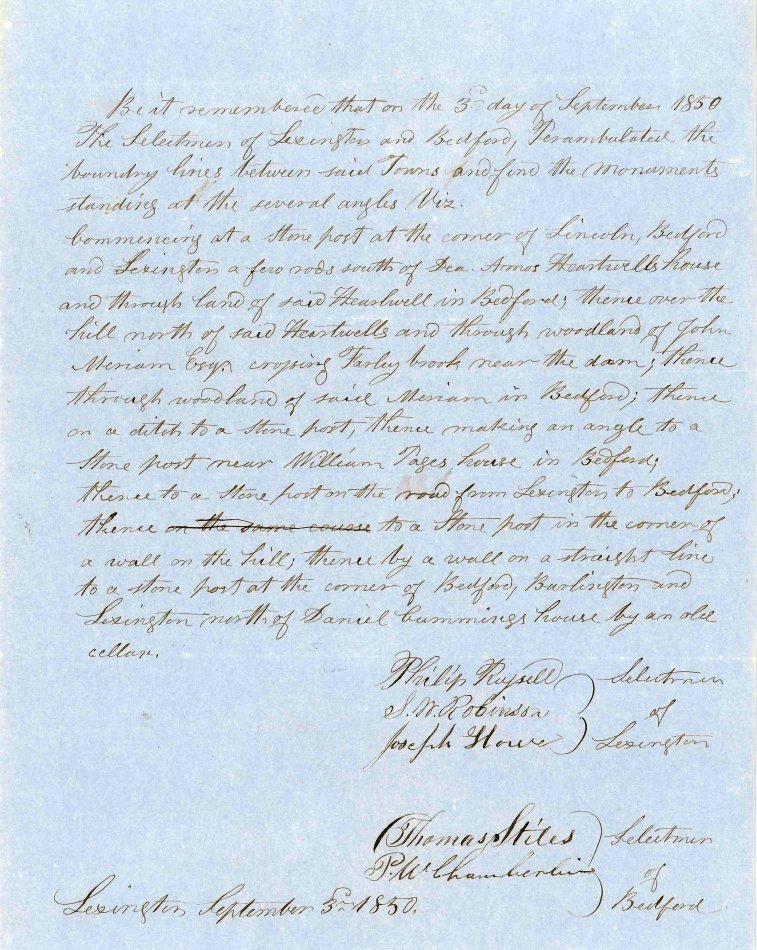 Be it remembered that on the 3rd day of September 1850
The Selectmen of Lexington and Bedford, Perambulated the
boundry lines between said Towns and find the monuments
standing at the several angles Viz.
Commencing at a stone post at the corner of Lincoln, Bedford
and Lexington a few rods south of Dea. Amos Heartwells house
and through land of said Heartwell in Bedford; thence over the
hill north of said Heartwells and through woodland of John
Meriam Esqr. crossing Farley brook near the dam; thence
through woodland of said Meriam in Bedford; thence
on a ditch to a stone post, thence making an angle to a
Stone post near William Pages house in Bedford;
thence to a stone post on the road from Lexington to Bedford;
thence on the same course to a Stone post in the corner of
a wall on the hill; thence by a wall on a straight line
to a stone post at the corner of Bedford, Burlington and
Lexington north of Daniel Cummings house by an old
cellar.
Philip Russell } Selectmen
S. W. Robinson } of
Joseph Howe } Lexington
Thomas Stiles } Selectmen
P. W. Chamberlin } of
Bedford
Lexington September 3rd 1850.